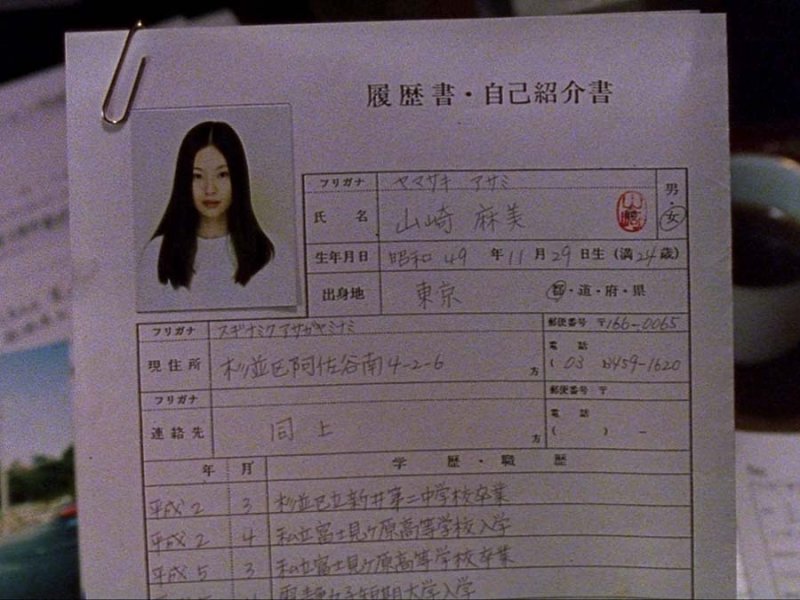 履歴書・自己紹介書
フリガナ ヤマサキ アサミ
氏名 山崎 麻美 男・女
生年月日 昭和 49 年 11 月 29 日生 (満 24 歳)
出身地 東京 都・道・府・県
フリガナ スギナミク アサガヤミナミ 郵便番号 〒166-0065
現住所 杉並区阿佐谷南4-2-6 方 電話 (03)3459-1620
フリガナ 郵便番号 〒
連絡先 同上 方 電話 ( ) -
年 月 学歴・職歴
平成2 3 杉並区立新井第二中学校卒業
平成2 4 私立富士見ヶ原高等学校入学
平成5 3 私立富士見ヶ原高等学校卒業
短期大学入学